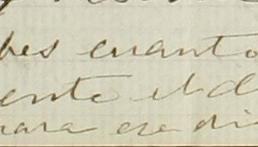 bes cuanto
ente el d
para ese di